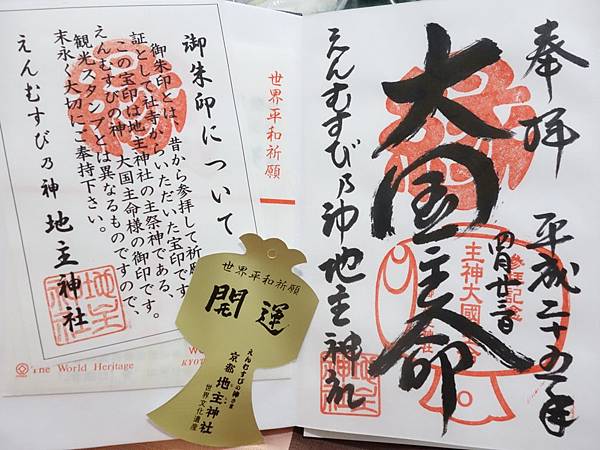 奉拝
平成二十五年
四月廿三日
大国主命
えんむすび乃神地主神社
縁
参拝記念
主神大國
地主
神社
御朱印について
御朱印とは、昔から参拝して祈願
証として社寺からいただいた宝印です
この宝印は地主神社の主祭神である、
えんむすびの神、大国主命様の御印です。
観光スタンプとは異なるものですので、
末永く大切にご奉持下さい。
えんむすび乃神 地主神社
地主
神社
世界平和祈願
The World Heritage
KYO
世界平和祈願
開運
えんむすびの神さま
京都 地主神社
世界文化遺産